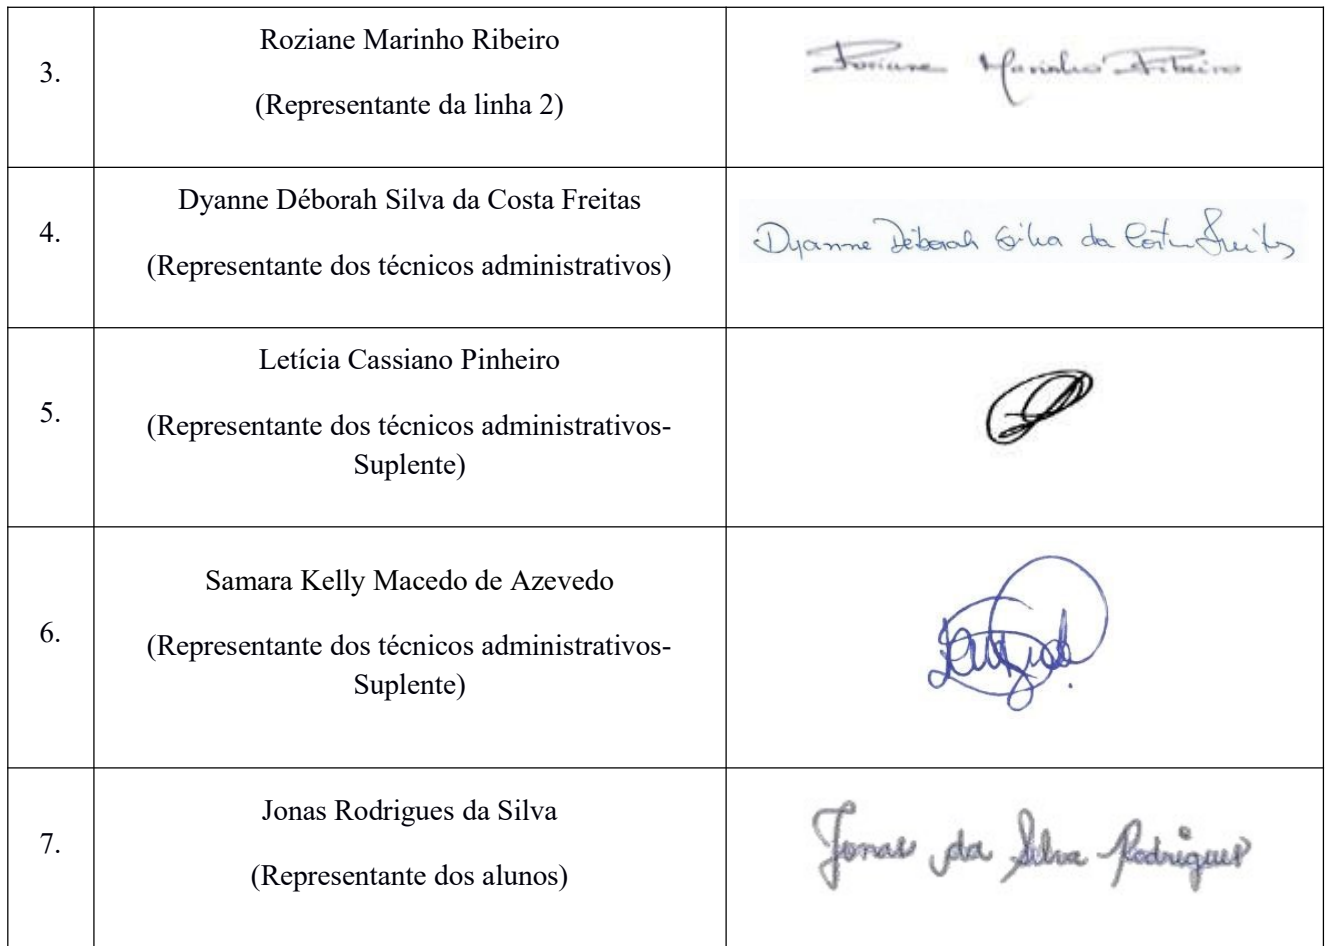 3.
Roziane Marinho Ribeiro
(Representante da linha 2)
Roziane Marinho Ribeiro
4.
Dyanne Déborah Silva da Costa Freitas
(Representante dos técnicos administrativos)
Dyanne Déborah Silva da Costa Freitas
5.
Letícia Cassiano Pinheiro
(Representante dos técnicos administrativos-
Suplente)
6.
Samara Kelly Macedo de Azevedo
(Representante dos técnicos administrativos-
Suplente)
7.
Jonas Rodrigues da Silva
(Representante dos alunos)
Jonas da Silva Rodrigues